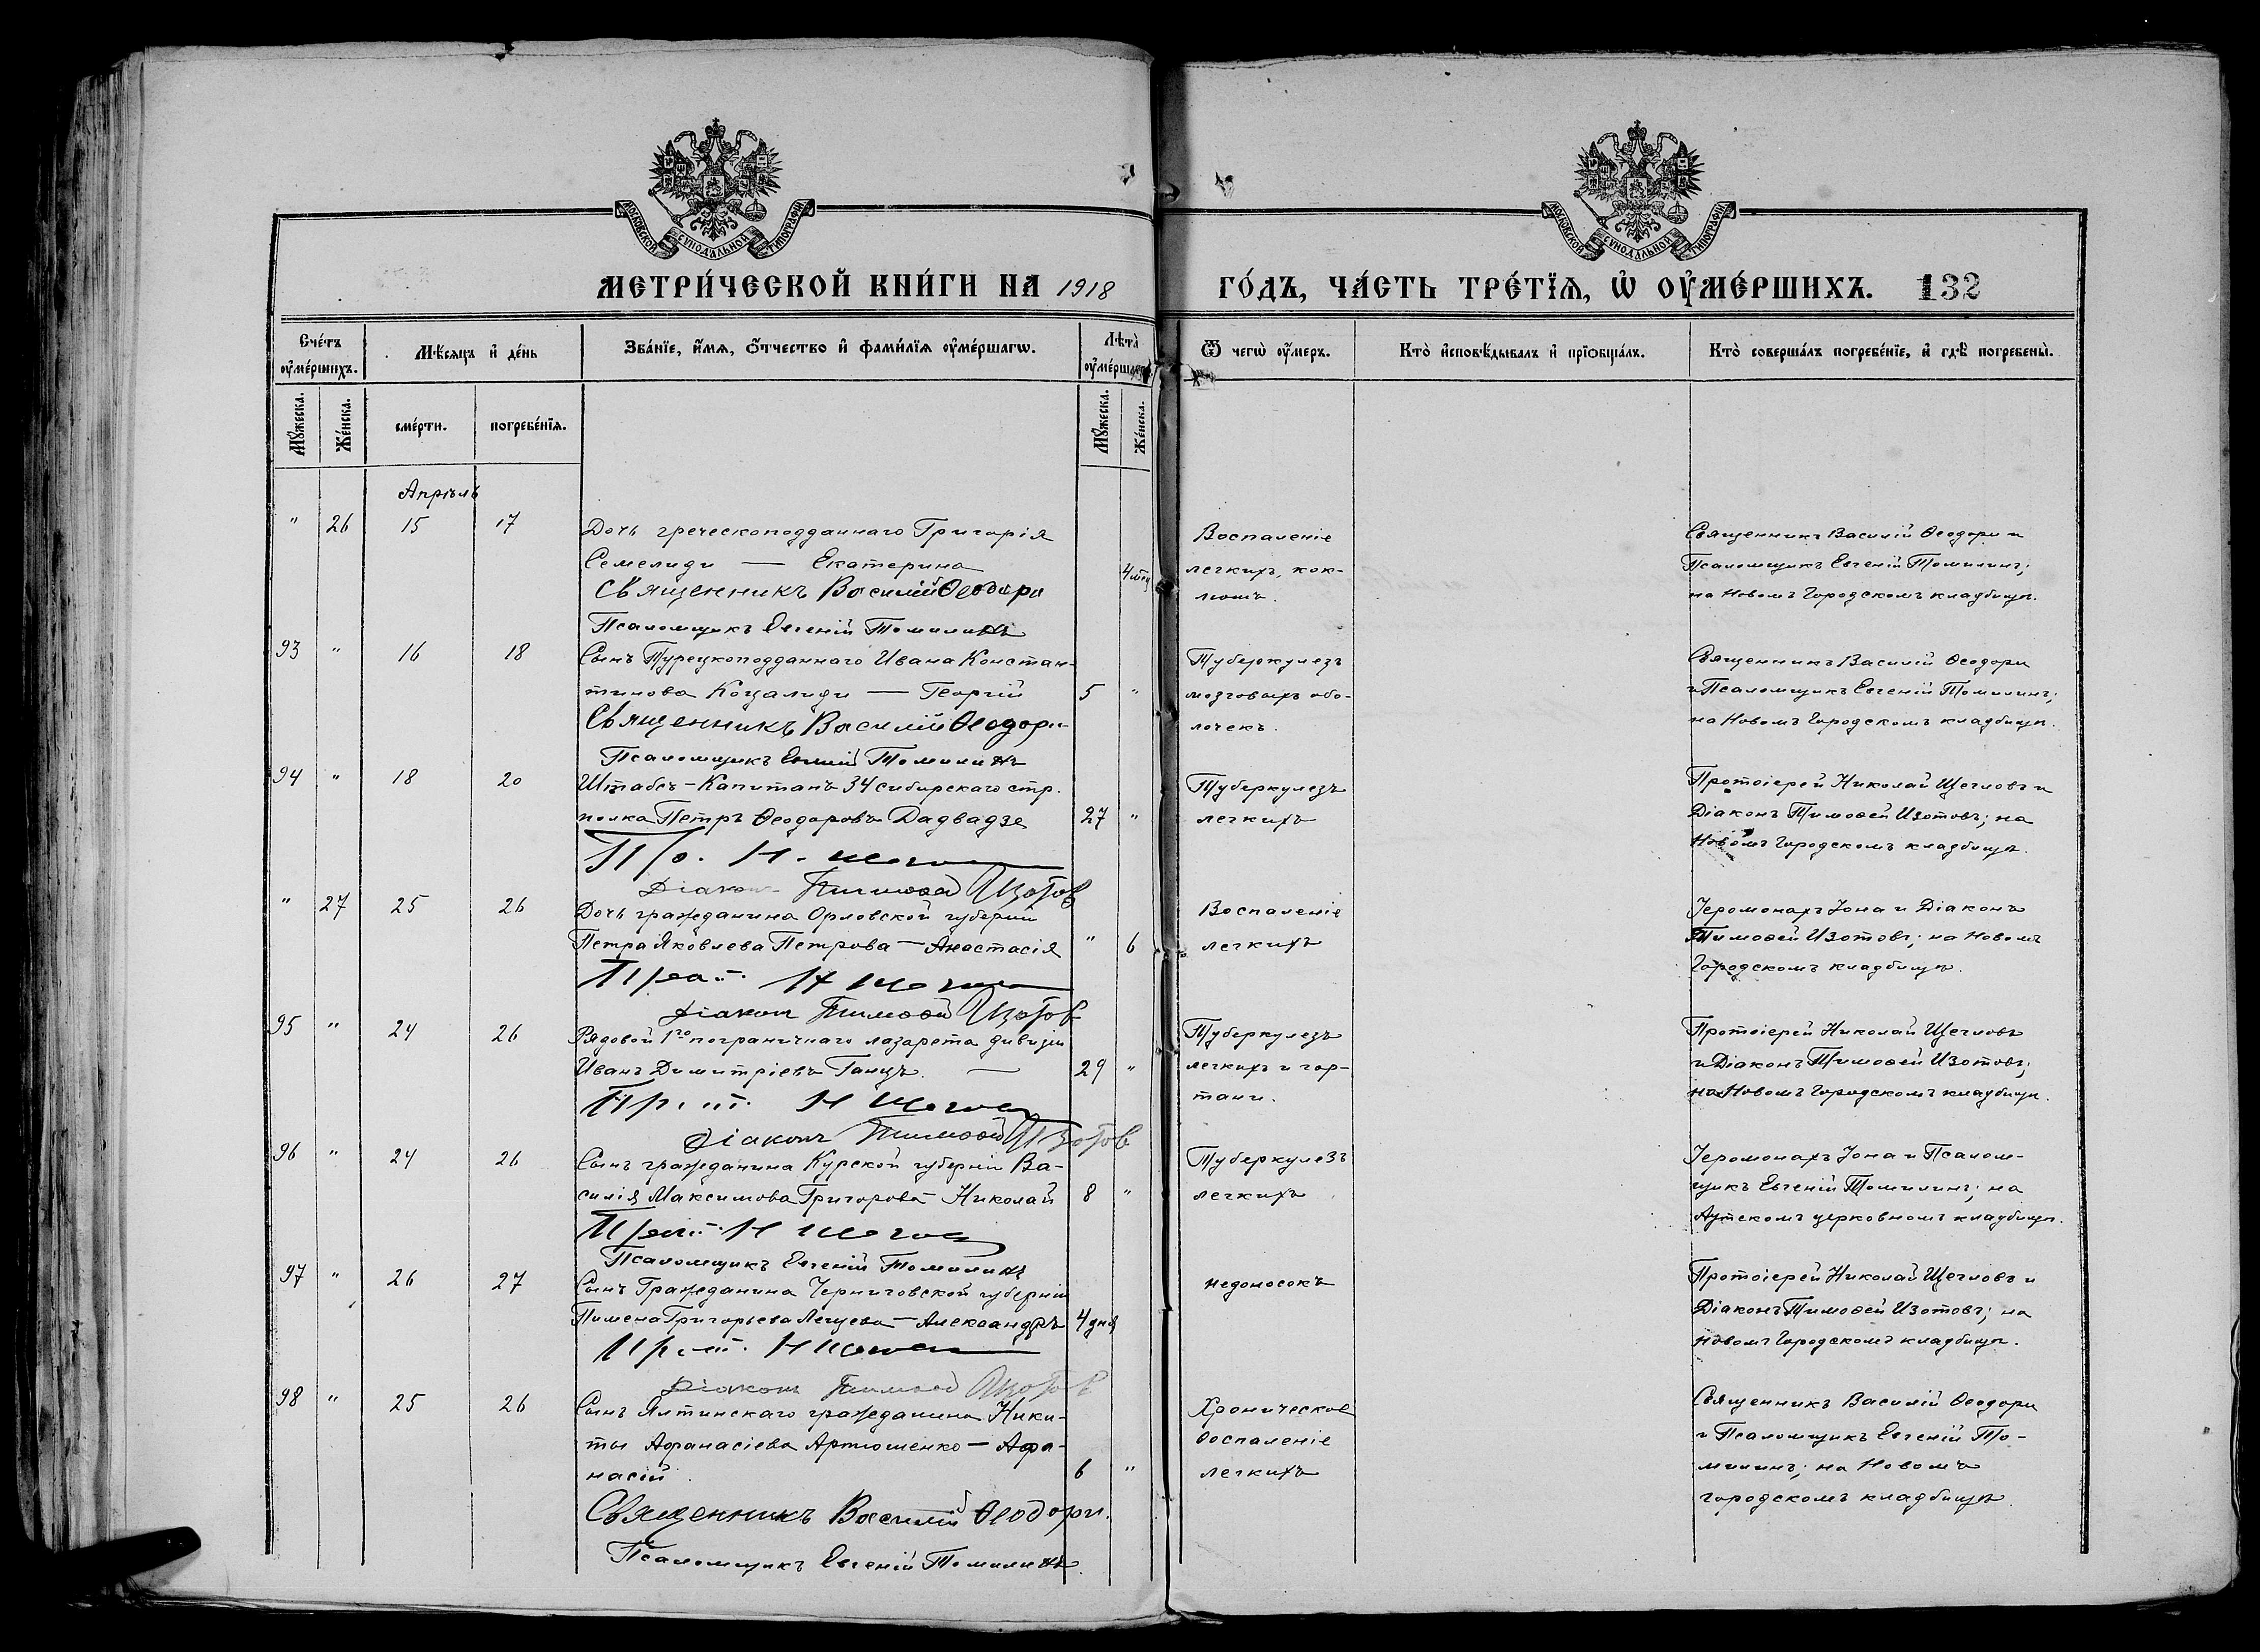 МОСКОВСКОЙ СѴНОДАЛЬНОЙ ТИПОГРАФІИ
МОСКОВСКОЙ СѴНОДАЛЬНОЙ ТИПОГРАФІИ
МЕТРИ́ЧЕСКОЙ КНИ́ГИ НА 1918
ГО́ДЪ, ЧА́СТЬ ТРЕ́ТЇѦ, Ѡ҆ ОУ҆МЕ́РШИХЪ. 132
Сче́тъ оу҆ме́ршихъ.
Мѣ́сѧцъ и҆ де́нь
Зва́нїе, и҆́мѧ, ѻ҆́тчество и҆ фами́лїѧ оу҆ме́ршагѡ.
Лѣ̀та оу҆ме́ршагѡ
Ѿ чегѡ̀ оу҆́меръ.
Кто̀ и҆сповѣ́дывалъ и҆ прїѻбща́лъ.
Кто̀ соверша́лъ погребе́нїе, и҆ гдѣ̀ погребены̀.
Мꙋ́жеска.
Же́нска.
сме́рти.
погребе́нїѧ.
Мꙋ́жеска.
Же́нска.
Апрѣль
" 26 15 17
Дочь греческоподданнаго Григорія
Семелиди — Екатерина
4 мѣс
Священникъ Василій Ѳеодори
Псаломщикъ Евгеній Томилинъ
Воспаленіе
легкихъ, кок-
люшъ.
Священникъ Василій Ѳеодори и
Псаломщикъ Евгеній Томилинъ;
на Новомъ Городскомъ кладбищѣ.
93 " 16 18
Сынъ Турецкоподданнаго Ивана Констан-
тинова Коцалиди — Георгій
5 "
Священникъ Василій Ѳеодори
Псаломщикъ Евгеній Томилинъ
Туберкулезъ
мозговыхъ обо-
лочекъ.
Священникъ Василій Ѳеодори
и Псаломщикъ Евгеній Томилинъ;
на Новомъ Городскомъ кладбищѣ.
94 " 18 20
Штабсъ-Капитанъ 34 сибирскаго стр.
полка Петръ Ѳеодоровъ Дадвадзе
27 "
Пр. Н. Щегловъ
Діаконъ Тимоѳей Изотовъ
Туберкулезъ
легкихъ
Протоіерей Николай Щегловъ и
Діаконъ Тимоѳей Изотовъ; на
Новомъ Городскомъ кладбищѣ.
" 27 25 26
Дочь гражданина Орловской губерніи
Петра Яковлева Петрова — Анастасія
" 6
Прот. Н Щегловъ
Діаконъ Тимоѳей Изотовъ
Воспаленіе
легкихъ
Іеромонахъ Іона и Діаконъ
Тимоѳей Изотовъ; на Новомъ
Городскомъ кладбищѣ.
95 " 24 26
Рядовой 1го пограничнаго лазарета дивизіи
Иванъ Димитріевъ Ганцъ. —
29 "
Прот. Н Щегловъ
Діаконъ Тимоѳей Изотовъ
Туберкулезъ
легкихъ и гор-
тани.
Протоіерей Николай Щегловъ
и Діаконъ Тимоѳей Изотовъ;
на Новомъ Городскомъ кладбищѣ.
96 " 24 26
Сынъ гражданина Курской губерніи Ва-
силія Максимова Григорова — Николай
8 "
Прот. Н Щегловъ
Псаломщикъ Евгеній Томилинъ
Туберкулезъ
легкихъ
Іеромонахъ Іона и Псалом-
щикъ Евгеній Томилинъ; на
Аутскомъ церковномъ кладбищѣ.
97 " 26 27
Сынъ Гражданина Черниговской губерніи
Пимена Григорьева — Александръ
4 дня
Прот. Н Щегловъ
Діаконъ Тимоѳей Изотовъ
недоносокъ
Протоіерей Николай Щегловъ и
Діаконъ Тимоѳей Изотовъ; на
Новомъ Городскомъ кладбищѣ.
98 " 25 26
Сынъ Ялтинскаго гражданина Ники-
ты Аѳанасіева Артюшенко — Аѳа-
насій.
6 "
Священникъ Василій Ѳеодори.
Псаломщикъ Евгеній Томилинъ.
Хроническое
воспаленіе
легкихъ
Священникъ Василій Ѳеодори
и Псаломщикъ Евгеній То-
милинъ; на Новомъ
городскомъ кладбищѣ.